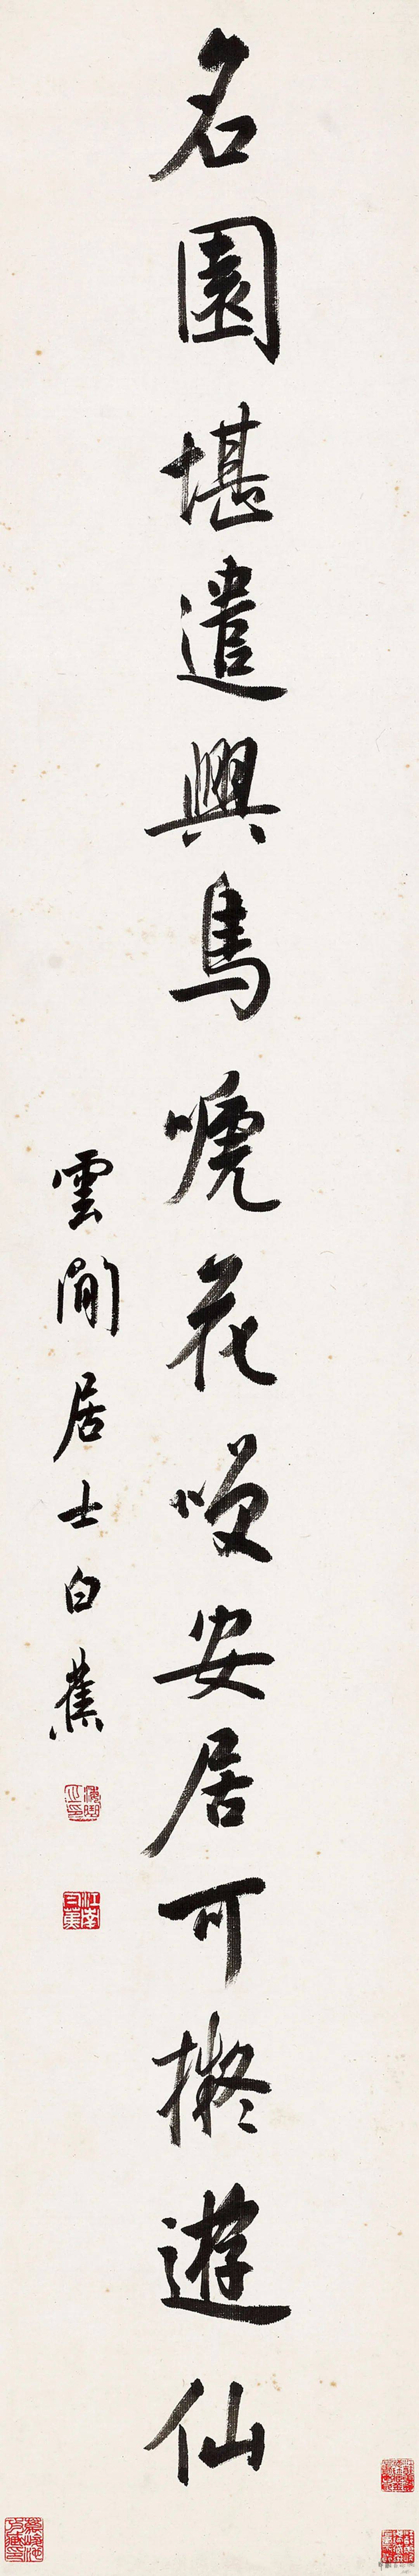 名園堪遣興鳥嗁花咲安居可擬遊仙
雲間居士白蕉
江南白蕉